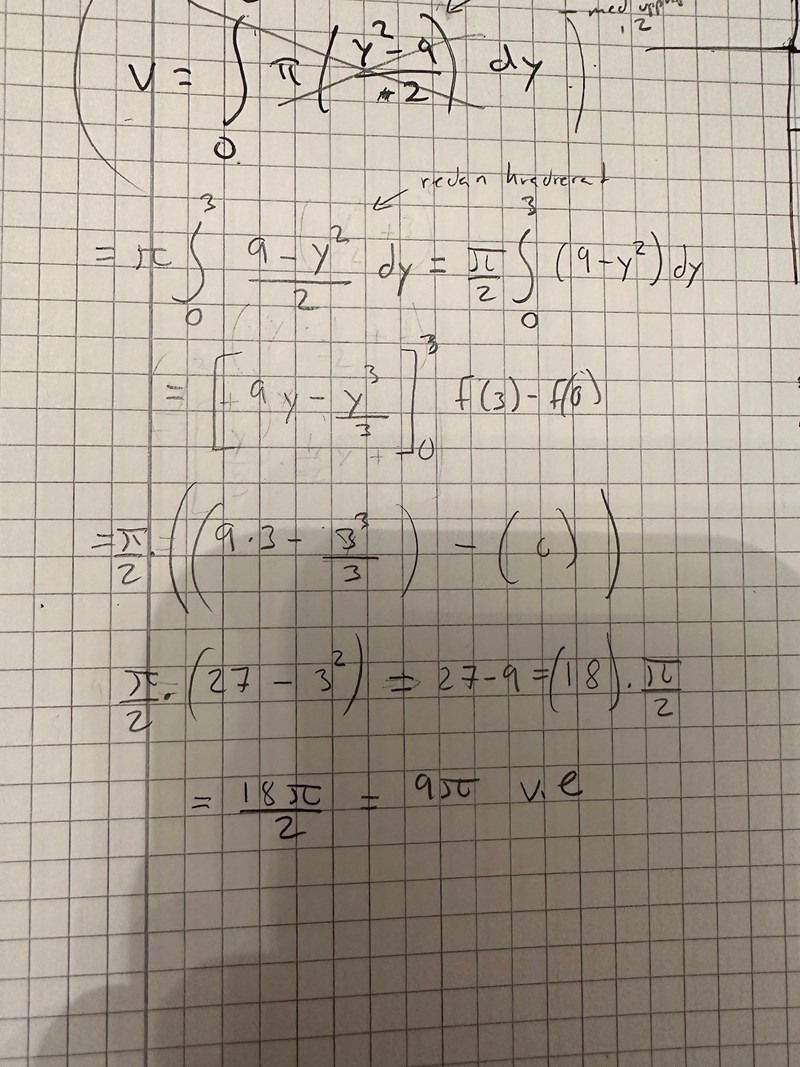 – med
, 2
V = ∫₀ π (y² - 9 / -2) dy
redan kvadrerat
= π ∫₀³ (9 - y²)/2 dy = π/2 ∫₀³ (9 - y²) dy
= [9y - y³/3]₀³ f(3) - f(0)
= π/2 · ((9·3 - 3³/3) - (0))
π/2 · (27 - 3²) = 27 - 9 = (18) · π/2
= 18π/2 = 9π v.e